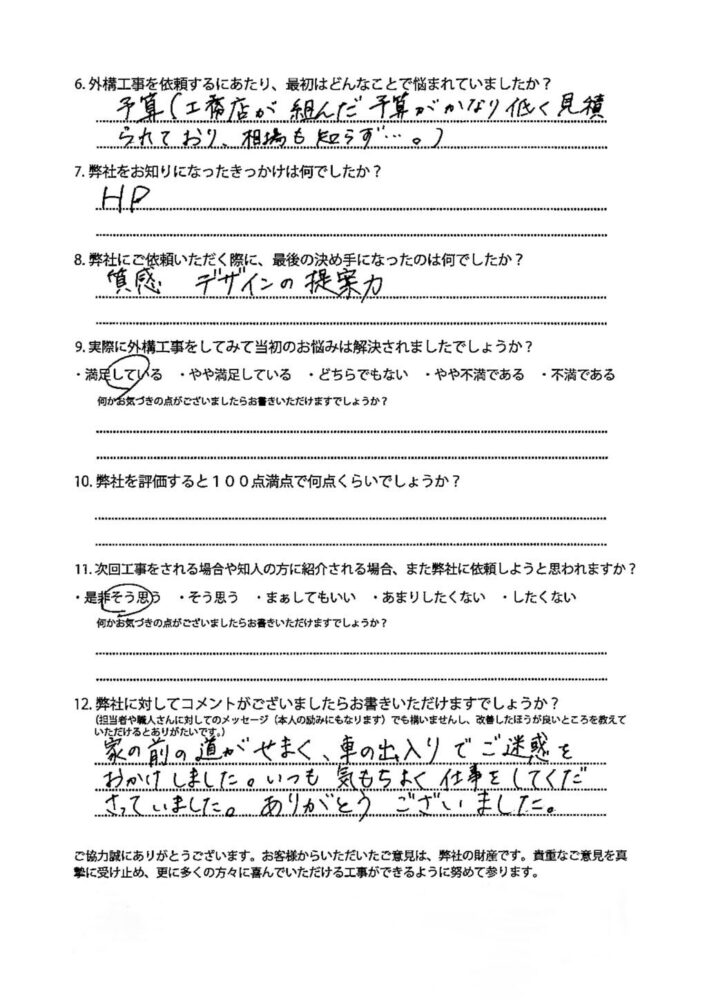 6. 外構工事を依頼するにあたり、最初はどんなことで悩まれていましたか？
予算(工務店が組んだ予算がかなり低く見積
られており、相場も知らず…。)
7. 弊社をお知りになったきっかけは何でしたか？
HP
8. 弊社にご依頼いただく際に、最後の決め手になったのは何でしたか？
質感 デザインの提案力
9. 実際に外構工事をしてみて当初のお悩みは解決されましたでしょうか？
・満足している ・やや満足している ・どちらでもない ・やや不満である ・不満である
何かお気づきの点がございましたらお書きいただけますでしょうか？
10. 弊社を評価すると１００点満点で何点くらいでしょうか？
11. 次回工事をされる場合や知人の方に紹介される場合、また弊社に依頼しようと思われますか？
・是非そう思う ・そう思う ・まぁしてもいい ・あまりしたくない ・したくない
何かお気づきの点がございましたらお書きいただけますでしょうか？
12. 弊社に対してコメントがございましたらお書きいただけますでしょうか？
（担当者や職人さんに対してのメッセージ（本人の励みにもなります）でも構いませんし、改善したほうが良いところを教えて
いただけるとありがたいです。）
家の前の道がせまく、車の出入りでご迷惑を
おかけしました。いつも気もちよく仕事をしてくだ
さっていました。ありがとうございました。
ご協力誠にありがとうございます。お客様からいただいたご意見は、弊社の財産です。貴重なご意見を真
摯に受け止め、更に多くの方々に喜んでいただける工事ができるように努めて参ります。